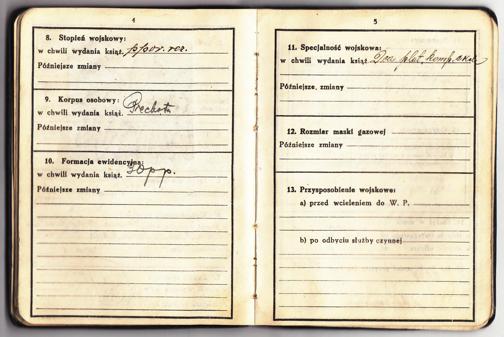 4
8. Stopień wojskowy:
w chwili wydania książ. ppor. rez.
Późniejsze zmiany
9. Korpus osobowy:
w chwili wydania książ. Piechota
Późniejsze zmiany
10. Formacja ewidencyjna:
w chwili wydania książ. 30 p.p.
Późniejsze zmiany
5
11. Specjalność wojskowa:
w chwili wydania książ. plut. komp.
Późniejsze zmiany
12. Rozmiar maski gazowej
Późniejsze zmiany
13. Przysposobienie wojskowe:
a) przed wcieleniem do W. P.
b) po odbyciu służby czynnej